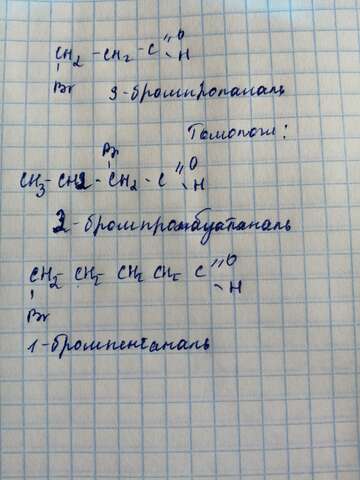 CH2 - CH2 - C =O
Br - H
3-бромпропаналь
Гомологи:
Br
CH3 - CH2 - CH2 - C =O
- H
2-бромпромбутаналь
CH2- CH2- CH2 CH2- C =O
Br - H
1-бромпентаналь